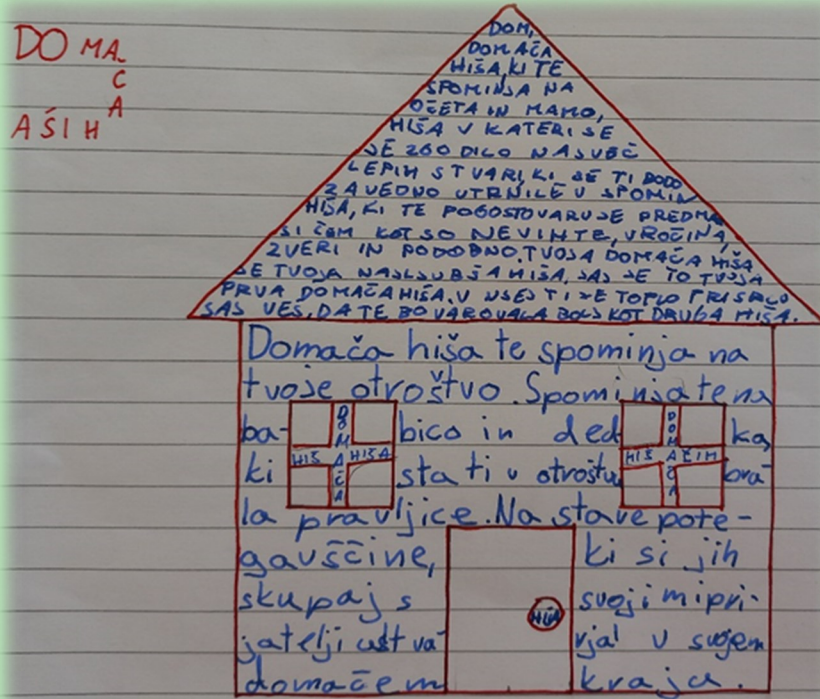 DOMA
Č
A
AŠIH
DOM,
DOMAČA
HIŠA, KI TE
SPOMINJA NA
OČETA IN MAMO,
HIŠA V KATERI SE
JE ZGODILO NAJVEČ
LEPIH STVARI, KI SE TI BODO
ZAVEDNO UTRNILE V SPOMIN
HIŠA, KI TE POGOSTOVARUJE PRED
SI ČEM KOT SO NEVIHTE, VROČINA,
ZVERI IN PODOBNO. TVOJA DOMAČA HIŠA
JE TVOJA NAJLJUBŠA HIŠA, SAJ JE TO TVOJA
PRVA DOMAČA HIŠA. V NJEJ TI JE TOPLO PRI SRCU
SAJ VEŠ, DA TE BO VAROVALA BOLJ KOT DRUGA HIŠA.
Domača hiša te spominja na
tvoje otroštvo. Spominja te na
ba- bico in ded ka,
ki sta ti v otroštvu bra-
la pravljice. Na stare pote-
gavščine, ki si jih
skupaj s svojimi pri-
jatelji ustva rjal v svojem
domačem kraju.
DOMAČA
HIŠ HIŠA
DOMAČA
HIŠ
HIŠA